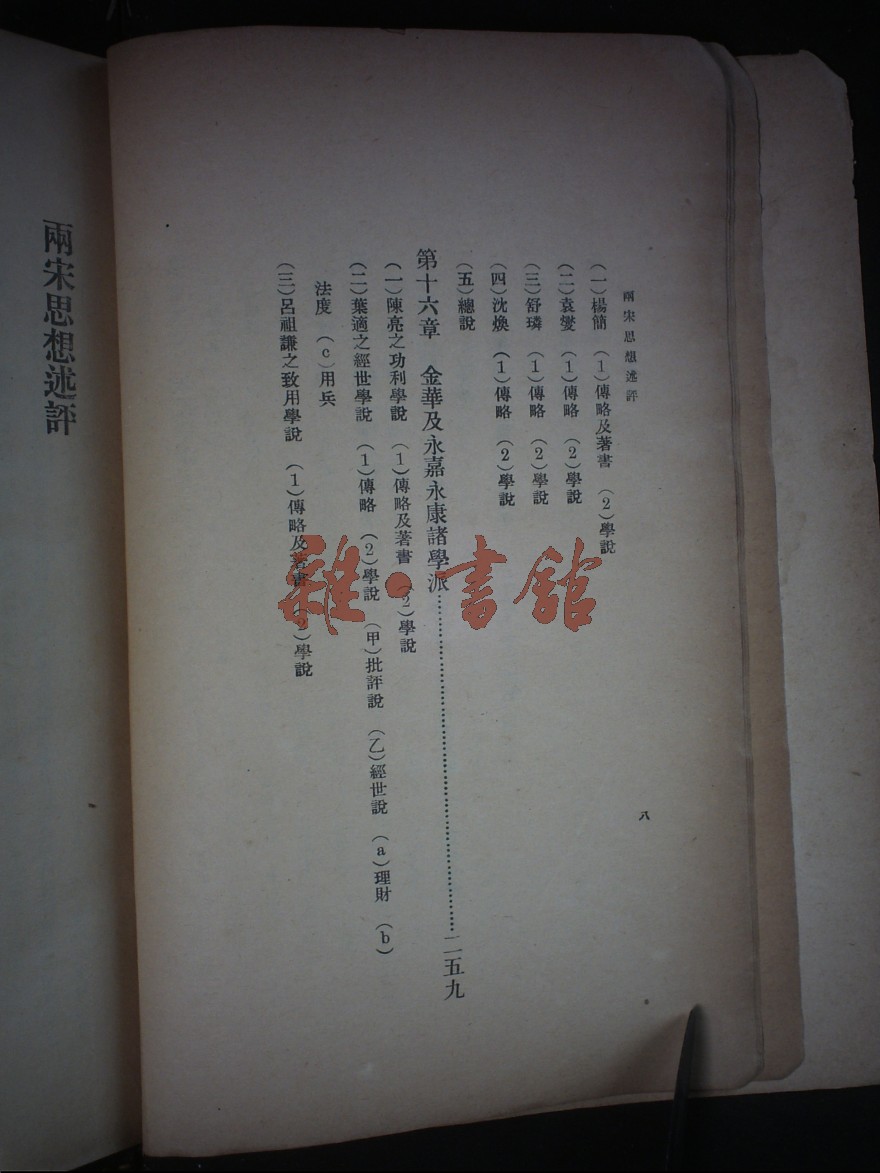 兩宋思想述評
(一)楊簡 (1)傳略及著書 (2)學說
(二)袁燮 (1)傳略 (2)學說
(三)舒璘 (1)傳略 (2)學說
(四)沈煥 (1)傳略 (2)學說
(五)總說
第十六章 金華及永嘉永康諸學派……二五九
(一)陳亮之功利學說 (1)傳略及著書 (2)學說
(二)葉適之經世學說 (1)傳略 (2)學說 (甲)批評說 (乙)經世說 (a)理財 (b)
法度 (c)用兵
(三)呂祖謙之致用學說 (1)傳略及著書 (2)學說
八
兩宋思想述評
雜·書館